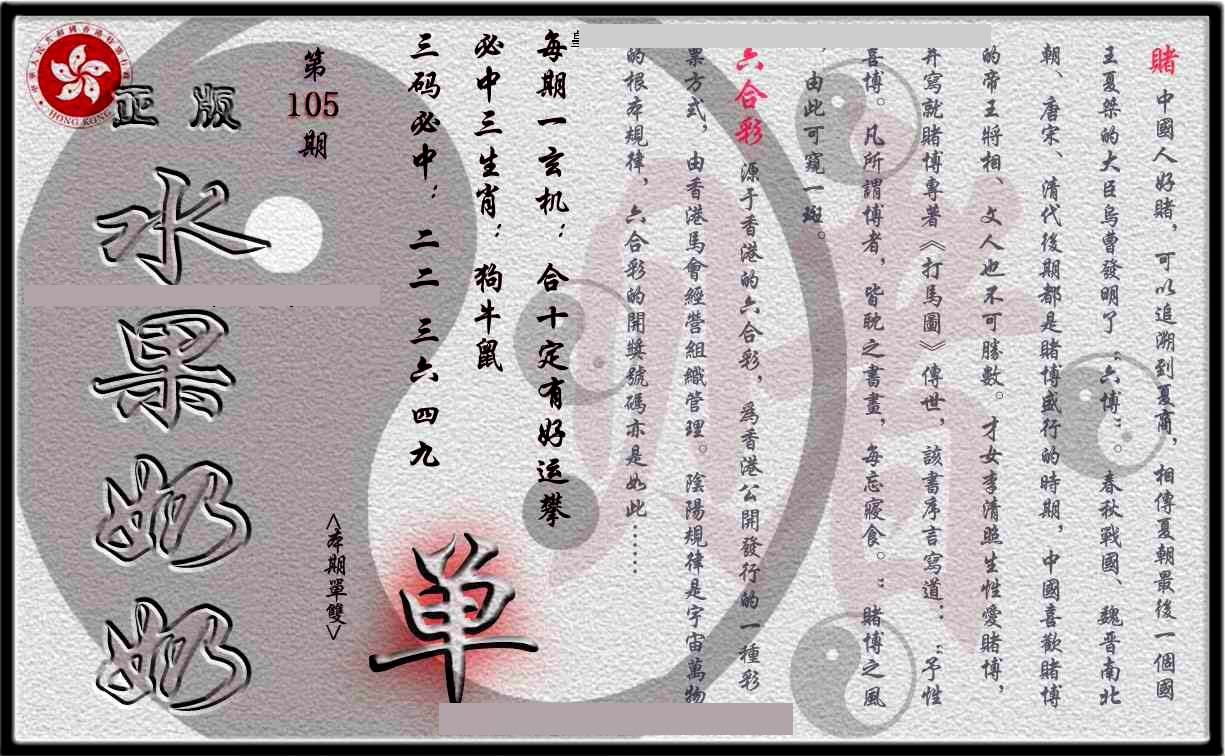 賭 中國人好賭，可以追溯到夏商，相傳夏朝最後一個國
王夏桀的大臣烏曹發明了“六博”。春秋戰國、魏晋南北
朝、唐宋、清代後期都是賭博盛行的時期，中國喜歡賭博
的帝王將相、文人也不可勝數。才女李清照生性愛賭博，
并寫就賭博專著《打馬圖》傳世，該書序言寫道：“予性
喜博。凡所謂博者，皆耽之書畫，每忘寢食。：賭博之風
，由此可窺一斑。
六合彩 源于香港的六合彩，為香港公開發行的一種彩
票方式，由香港馬會經營組織管理。陰陽規律是宇宙萬物
的根本規律，六合彩的開獎號碼亦是如此……
每期一玄机：合十定有好运攀
必中三生肖：狗牛鼠
三码必中：二二 三六 四九
單
<本期單雙>
第
105
期
正版
水果奶奶
HONG KONG